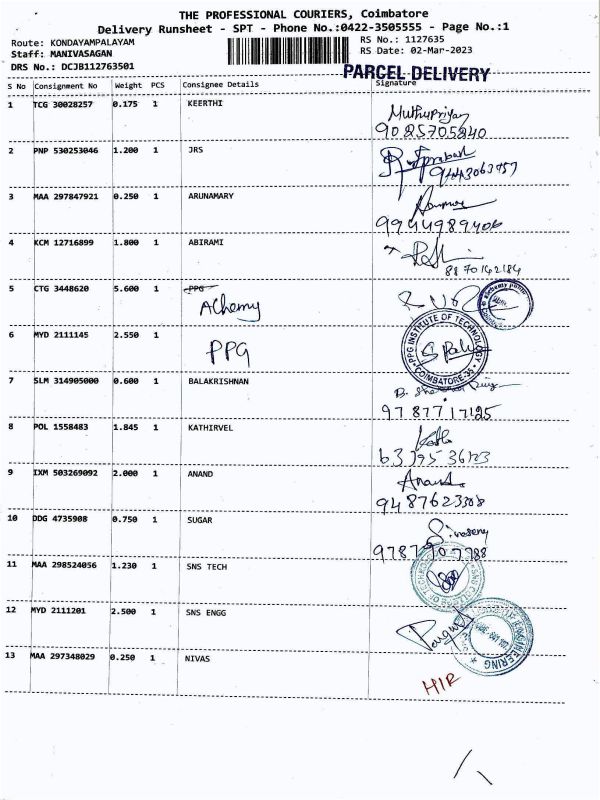 THE PROFESSIONAL COURIERS, Coimbatore
Delivery Runsheet - SPT - Phone No.:0422-3505555 - Page No.:1
Route: KONDAYAMPALAYAM RS No.: 1127635
Staff: MANIVASAGAN RS Date: 02-Mar-2023
DRS No.: DCJB112763501
PARCEL DELIVERY
S No Consignment No Weight PCS Consignee Details Signature
1 TCG 30028257 0.175 1 KEERTHI Muthupriya
9025705240
2 PNP 530253046 1.200 1 JRS
3 MAA 297847921 0.250 1 ARUNAMARY
9944989406
4 KCM 12716899 1.800 1 ABIRAMI
8870142184
5 CTG 3448620 5.600 1 PPG
Alchemy
6 MYD 2111145 2.550 1 PPG INSTITUTE OF TECHNOLOGY
PPG COIMBATORE-35
7 SLM 314905000 0.600 1 BALAKRISHNAN
9787717125
8 POL 1558483 1.845 1 KATHIRVEL
9 IXM 503269092 2.000 1 ANAND Anand
9487623308
10 DDG 4735908 0.750 1 SUGAR
9787907788
11 MAA 298524056 1.230 1 SNS TECH
12 MYD 2111201 2.500 1 SNS ENGG
13 MAA 297348029 0.250 1 NIVAS
HIR